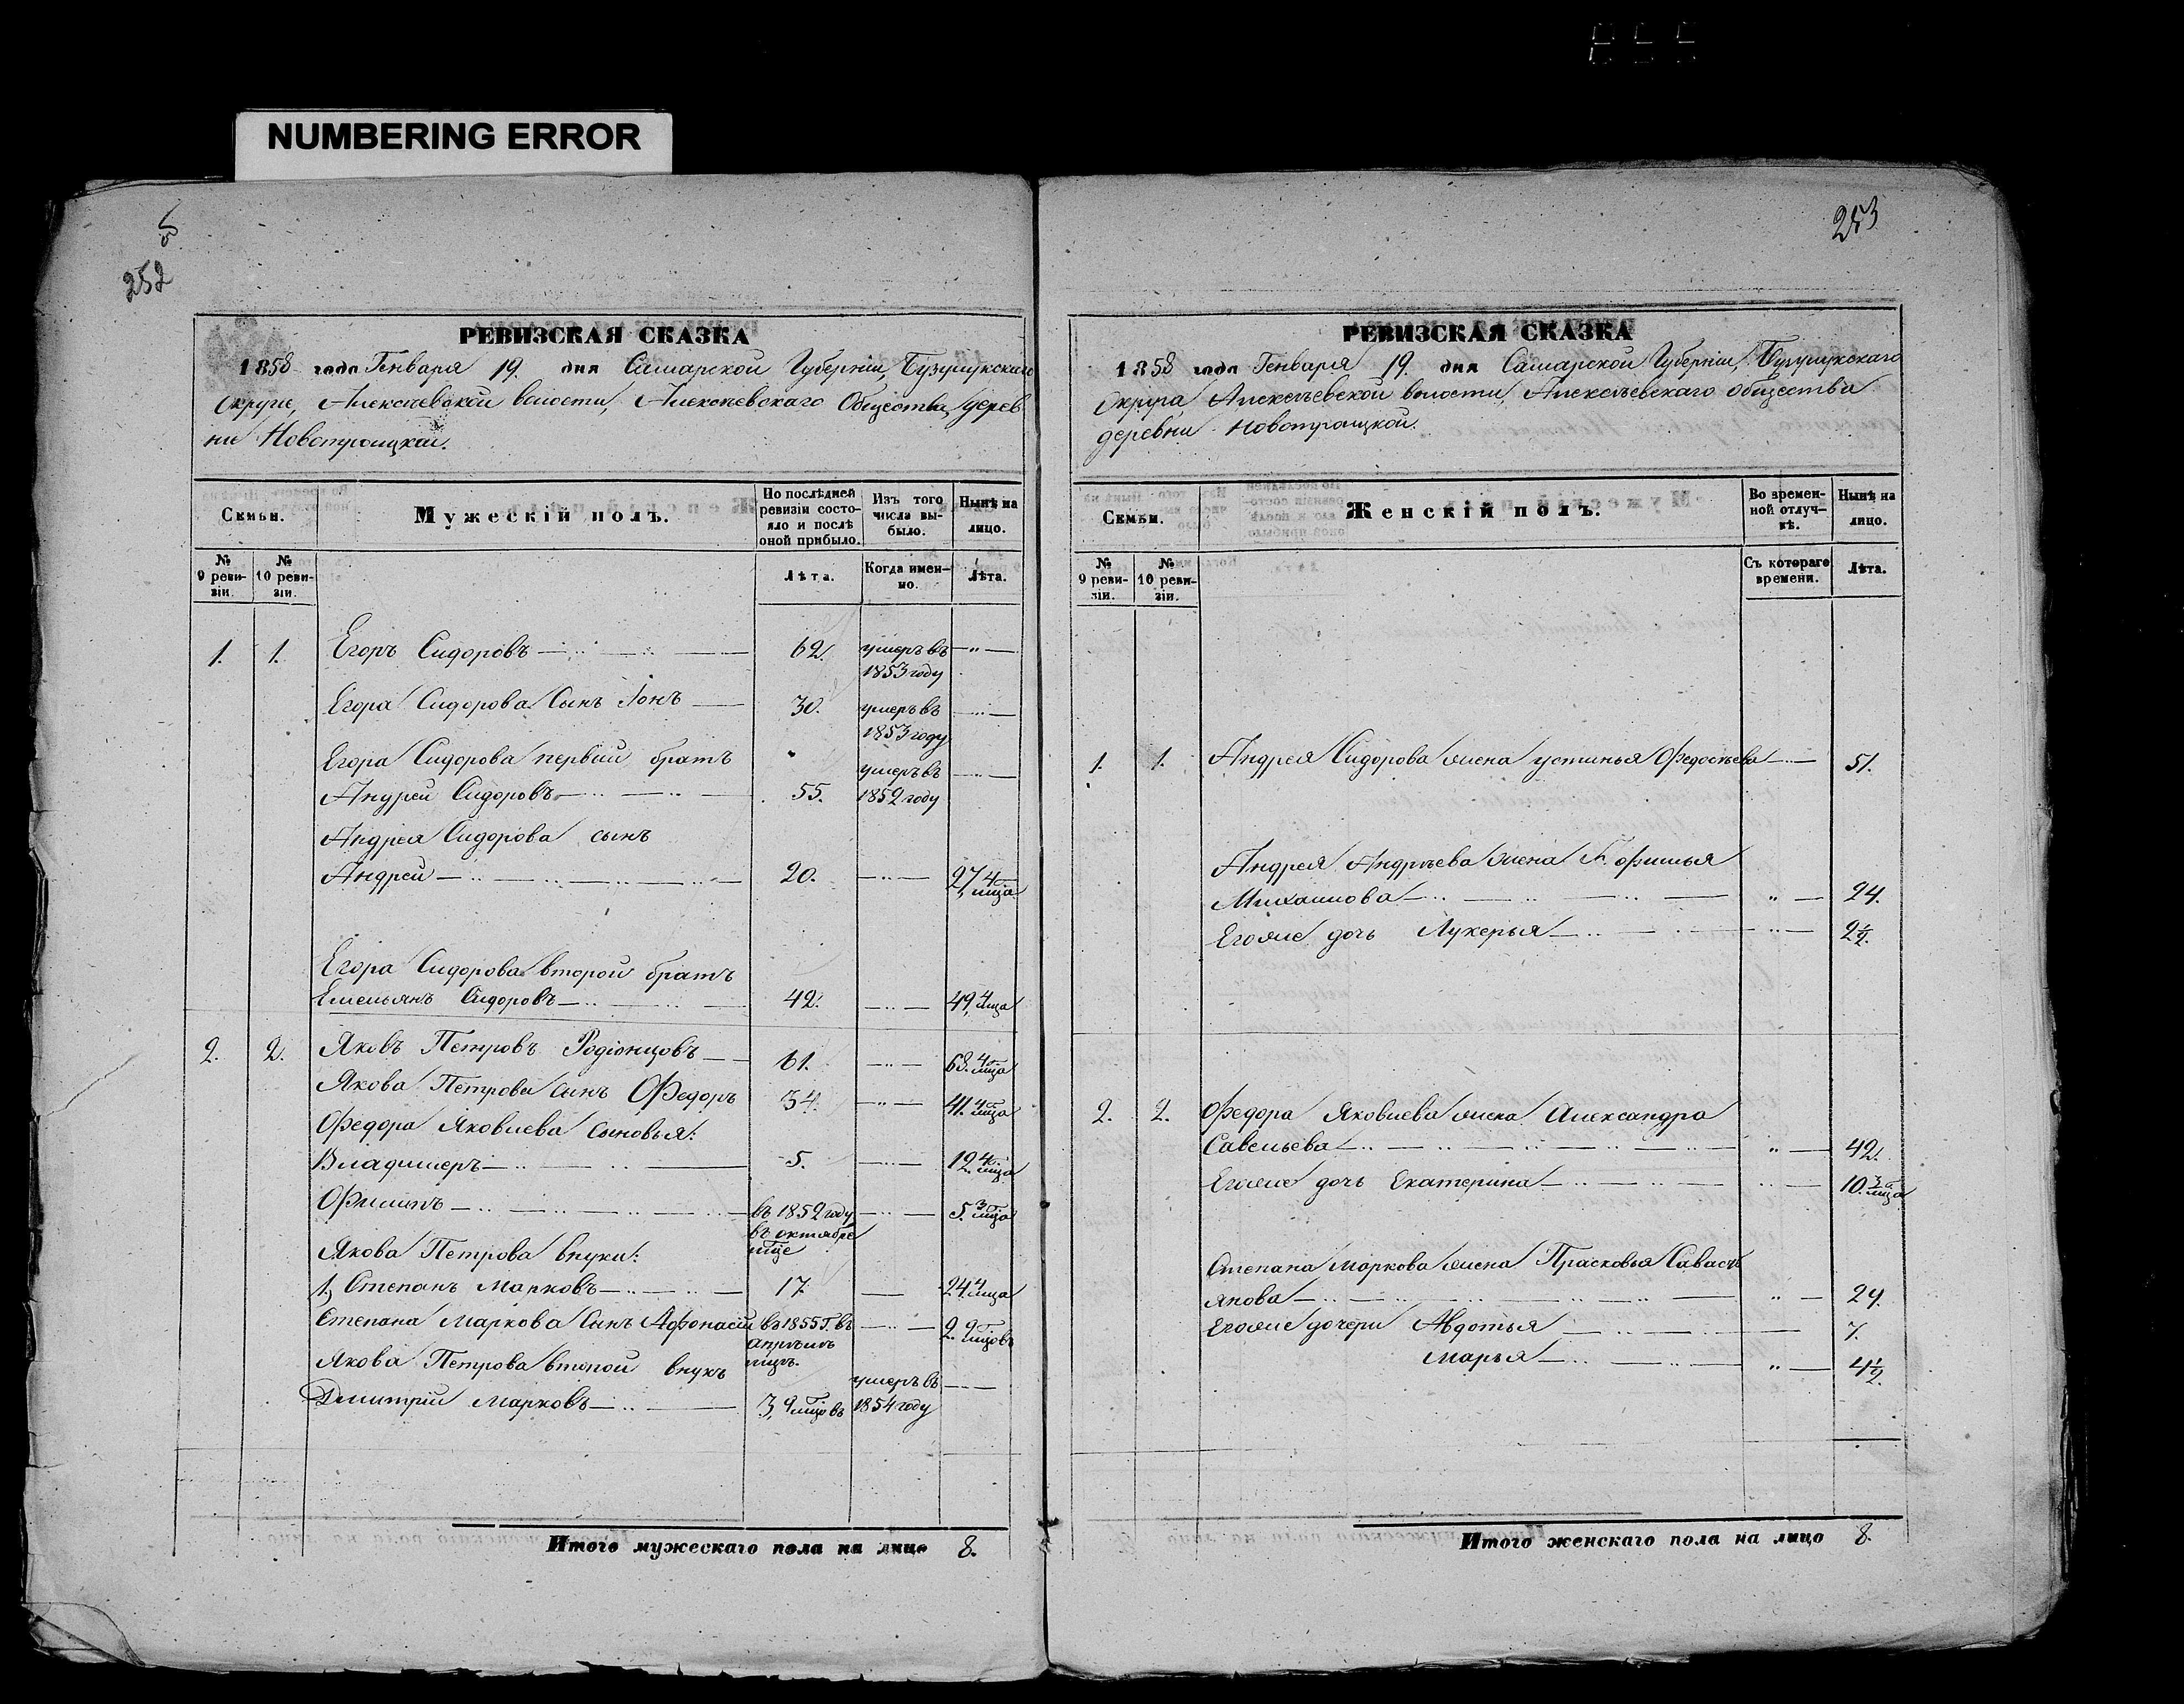 NUMBERING ERROR
252
РЕВИЗСКАЯ СКАЗКА
1858 года Генваря 19. дня Самарской Губерніи, Бузулукскаго
Округа, Алексѣевской волости, Алексѣевскаго Общества, дерев
ни Новотроицкой.
Семьи.
Мужескій полъ.
По послѣдней
ревизіи состо-
яло и послѣ
оной прибыло.
Изъ того
числа вы-
было.
Нынѣ на
лицо.
№
9 реви-
зіи.
№
10 реви-
зіи.
Лѣта.
Когда имен-
но.
Лѣта.
1. 1. Егоръ Сидоровъ 62. умеръ въ
1853 году
Егора Сидорова Сынъ Іонъ 30. умеръ въ
1853 году
Егора Сидорова первый братъ умеръ въ
Андрей Сидоровъ 55. 1852 году
Андрея Сидорова сынъ
Андрей 20. 27, 4 мца
Егора Сидорова второй братъ
Емельянъ Сидоровъ 42. 49, 4 мца
2. 2. Яковъ Петровъ Родіонцовъ 61. 68. 4 мца
Якова Петрова сынъ Федоръ 34. 41. 4 мца
Федора Яковлева сыновья:
Владимеръ 5. 12. 4 мца
Филипъ въ 1852 году 5. 3 мца
въ октябре
мце
Якова Петрова внуки:
1, Степанъ Марковъ 17 24. 4 мца
Степана Маркова Сынъ Афонасій въ 1855 г. въ 2. 9 мцовъ
апрѣлѣ
мцѣ.
Якова Петрова второй внукъ умеръ въ
Дмитрій Марковъ 3, 9 мцовъ 1854 году
Итого мужескаго пола на лицо 8.
253
РЕВИЗСКАЯ СКАЗКА
1858 года Генваря 19. дня Самарской Губерніи, Бузулукскаго
Округа, Алексѣевской волости, Алексѣевскаго общества
деревни Новотроицкой.
Семьи.
Женскій полъ.
Во времен-
ной отлуч-
кѣ.
Нынѣ на
лицо.
№
9 реви-
зіи.
№
10 реви-
зіи.
Съ котораго
времени.
Лѣта.
1. 1. Андрея Сидорова жена устинья Федосѣева 51.
Андрея Андрѣева жена
Михаилова 24.
Егоже дочь Лукерья 2 1/2.
2. 2. Федора Яковлева жена Александра
Савельева 42.
Егоже дочь Екатерина 10. 3 мца
Степана Маркова жена Прасковья Савасть
янова 24.
Егоже дочери Авдотья 7.
Марья 4 1/2.
Итого женскаго пола на лицо 8.